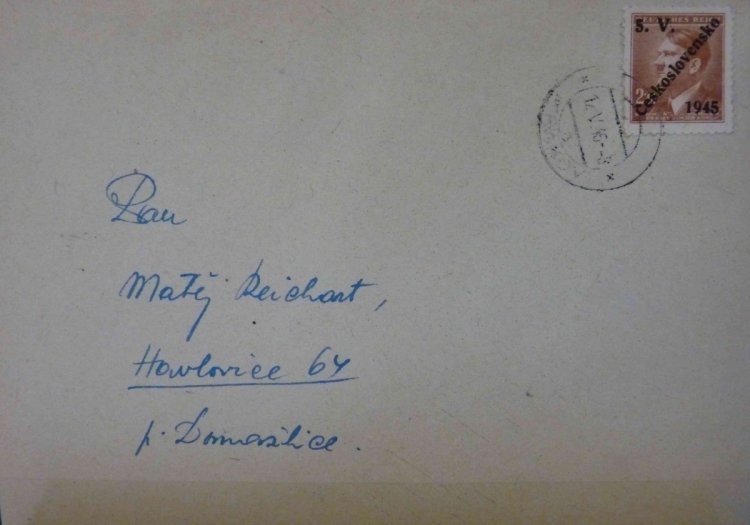 DEUTSCHES REICH
5. V.
Československo
1945
Pan
Matěj Reichart,
Havlovice 64
p. Domažlice.